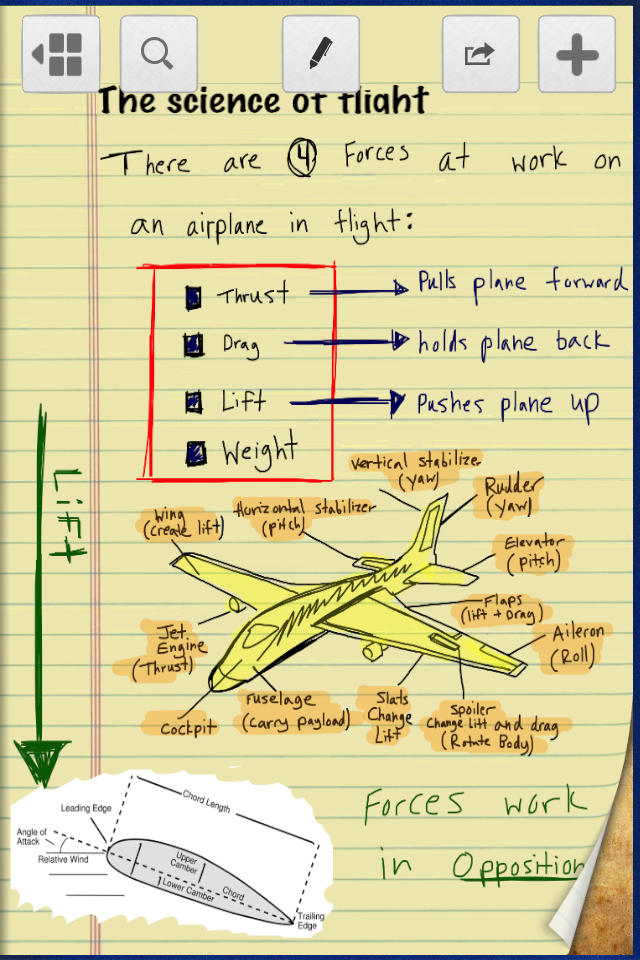 The science of flight
There are 4 Forces at work on
an airplane in flight:
Thrust → Pulls plane forward
Drag → holds plane back
Lift → Pushes plane up
Weight
Lift
Vertical stabilizer
(yaw)
Rudder
(yaw)
Horizontal stabilizer
(pitch)
Wing
(create lift)
Elevator
(pitch)
Flaps
(lift + Drag)
Aileron
(Roll)
Jet
Engine
(Thrust)
Cockpit
Fuselage
(Carry payload)
Slats
Change
Lift
Spoiler
Change Lift and drag
(Rotate Body)
Chord Length
Leading Edge
Angle of
Attack
Relative Wind
Upper
Camber
Lower Camber
Chord
Trailing
Edge
Forces work
in Opposition